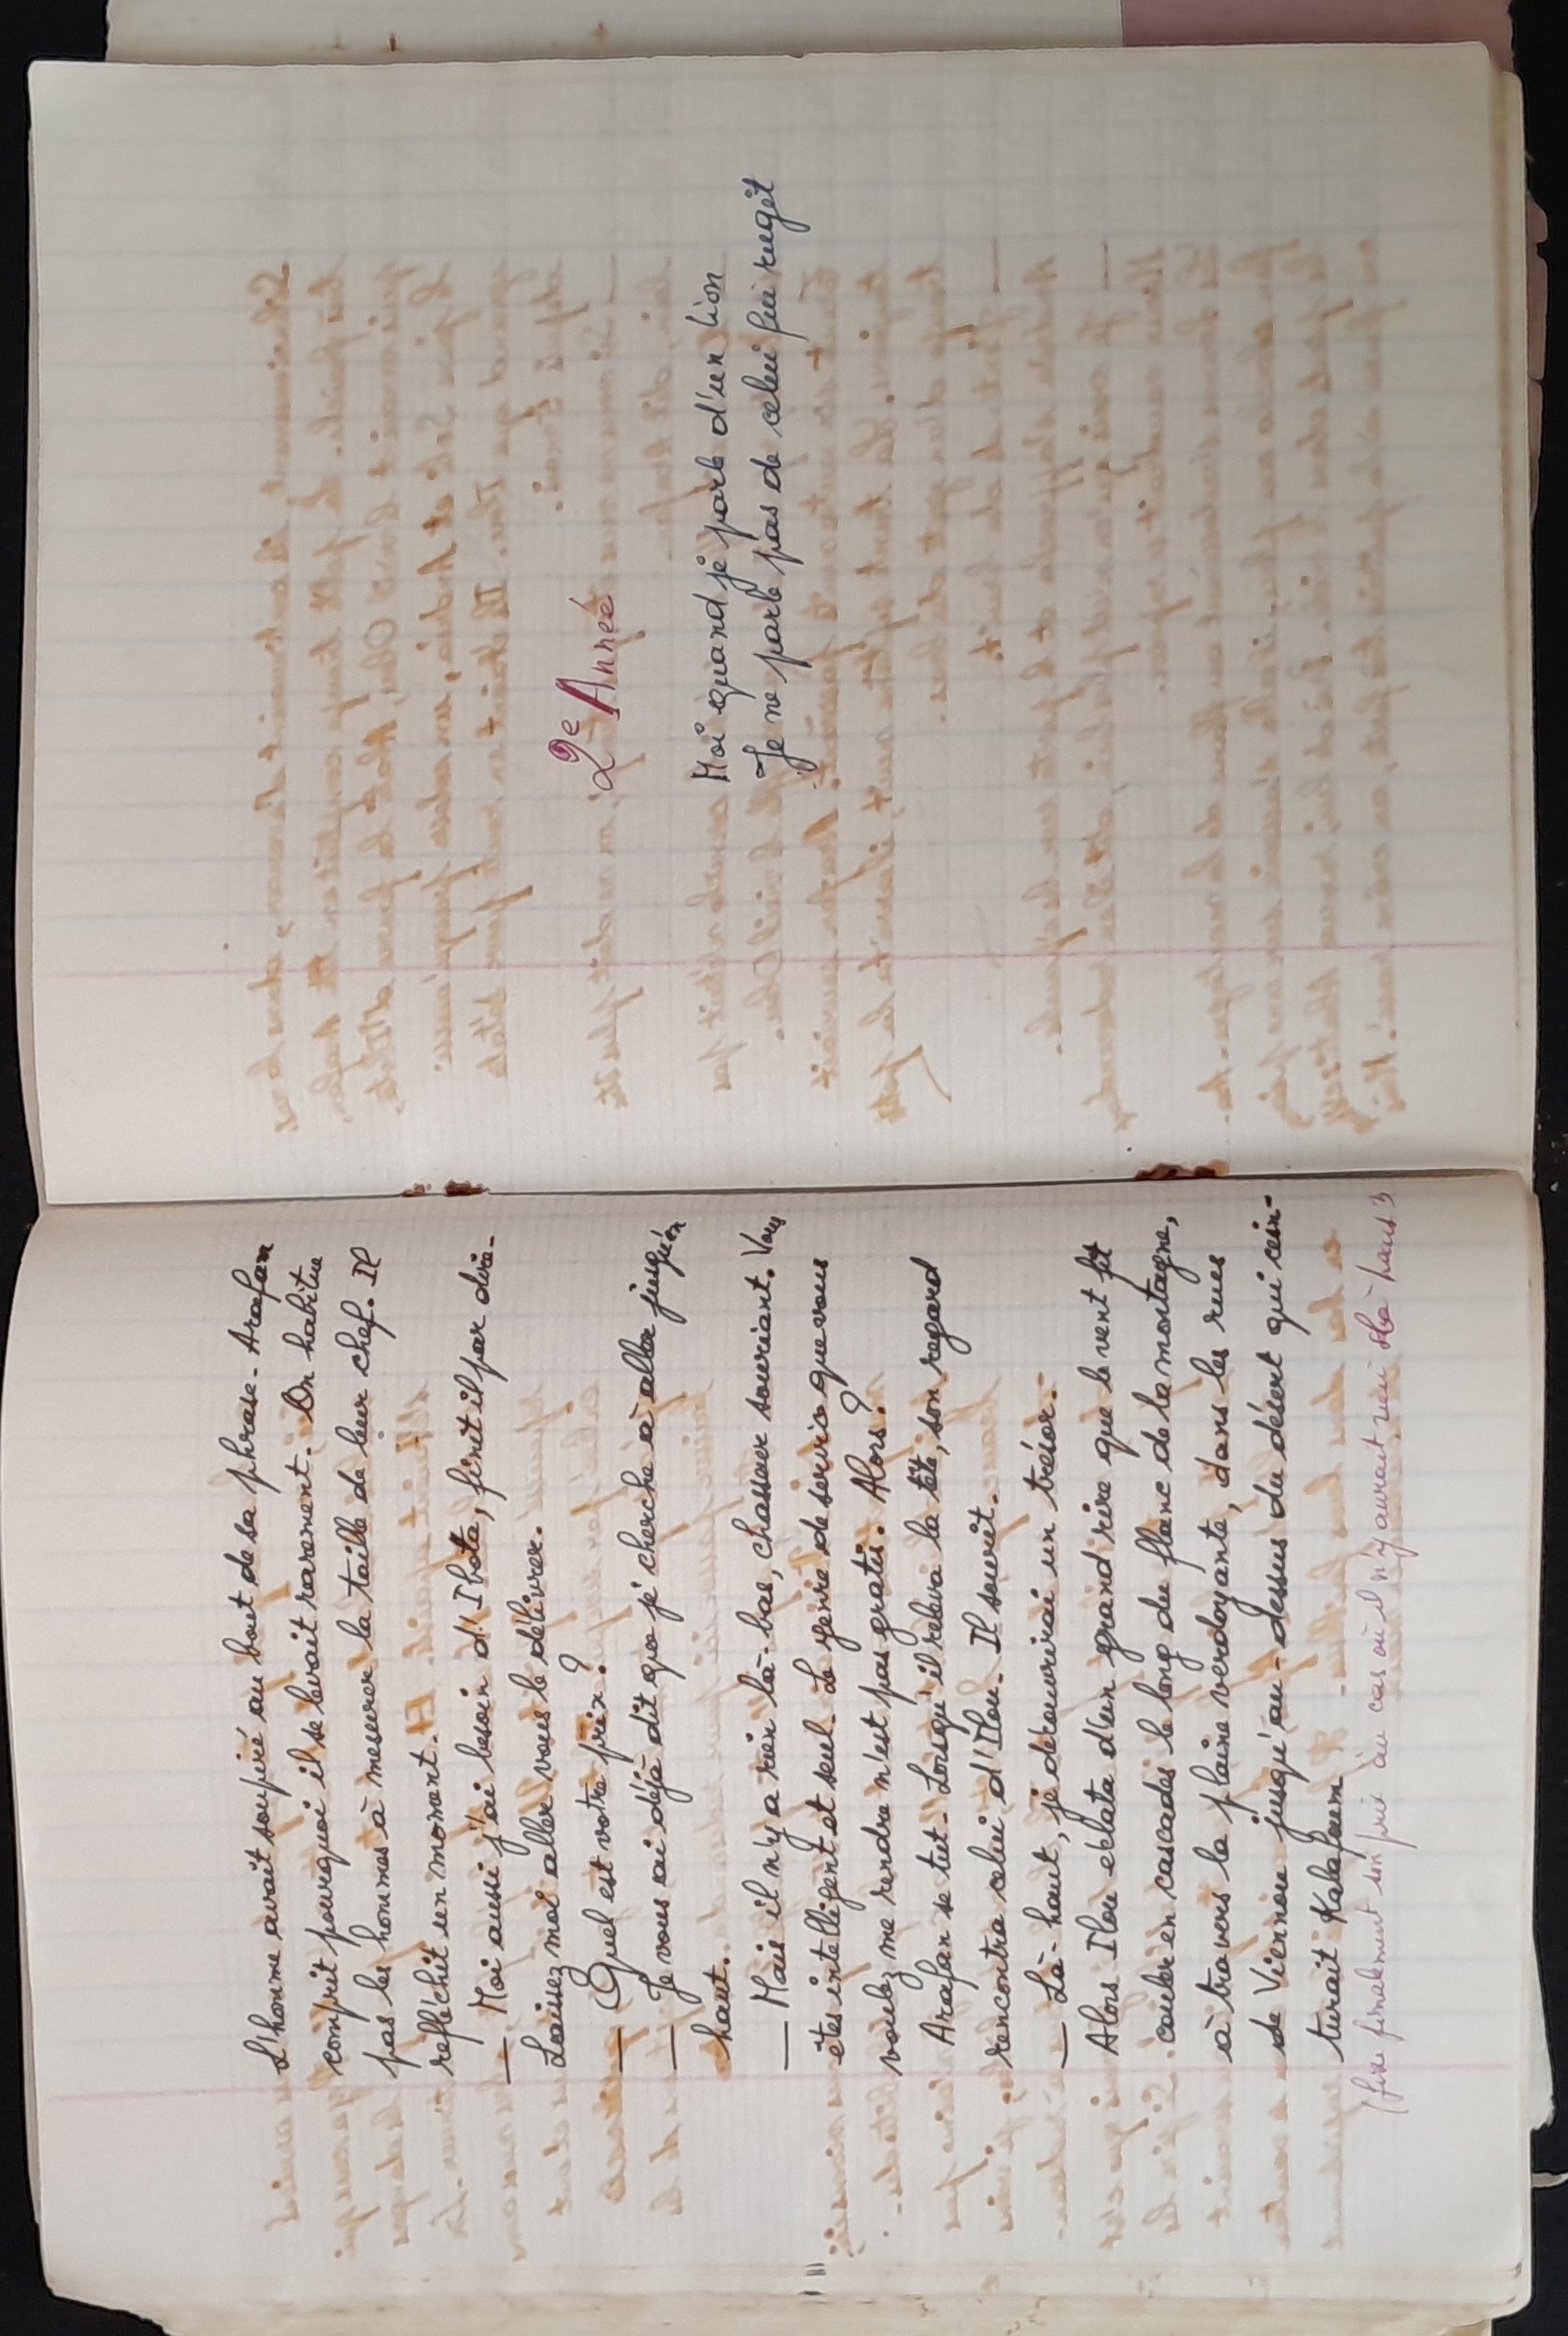 L'homme avait soupiré au bout de sa phrase. Arafan
comprit pourquoi il se levait rarement. On habitue
pas les hommes à mesurer la taille de leur chef. Il
refléchit un moment.
— Moi aussi j'ai besoin d'Ibota, finit il par dire.
Laissez moi aller vous le délivrer.
— Quel est votre prix ?
— Je vous ai déjà dit que je cherche à aller jusqu'en
haut.
— Mais il n'y a rien là-bas, chasseur souriant. Vous
êtes intelligent et seul. Le genre de service que vous
voulez me rendre n'est pas gratis. Alors ?
Arafan se tut. Lorsqu'il releva la tête, son regard
rencontra celui d'Ilou. Il sourit.
— Là-haut, je découvrirai un trésor.
Alors Ilou éclata d'un grand rire que le vent fit
couler en cascades le long du flanc de la montagne,
à travers la plaine verdoyante, dans les rues
de Viennou jusqu'au-dessus du désert qui cein-
turait Kalafoum
(fixe finalement un prix au cas où il n'y aurait rien là-haut)
2e Année
Moi quand je parle d'un Lion
Je ne parle pas de celui qui rugit